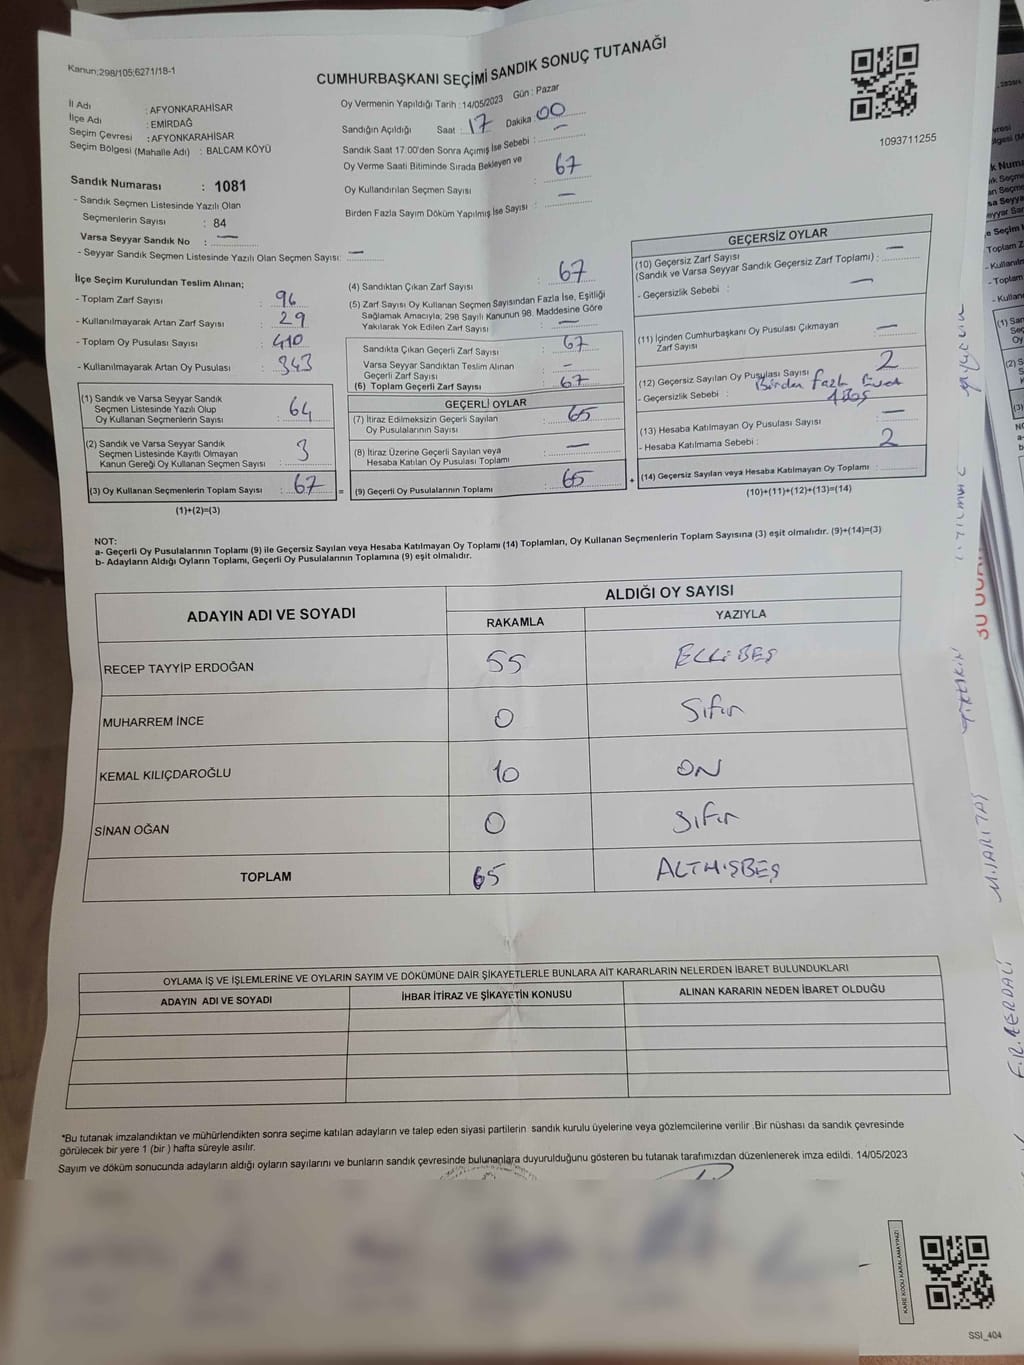 Kanun;298/105;6271/18-1
CUMHURBAŞKANI SEÇİMİ SANDIK SONUÇ TUTANAĞI
İl Adı : AFYONKARAHİSAR
İlçe Adı : EMİRDAĞ
Seçim Çevresi : AFYONKARAHİSAR
Seçim Bölgesi (Mahalle Adı) : BALCAM KÖYÜ
Sandık Numarası : 1081
- Sandık Seçmen Listesinde Yazılı Olan
Seçmenlerin Sayısı : 84
Varsa Seyyar Sandık No : —
- Seyyar Sandık Seçmen Listesinde Yazılı Olan Seçmen Sayısı: —
Oy Vermenin Yapıldığı Tarih : 14/05/2023 Gün : Pazar
Sandığın Açıldığı Saat : 17 Dakika : 00
Sandık Saat 17:00'den Sonra Açımış İse Sebebi : —
Oy Verme Saati Bitiminde Sırada Bekleyen ve
Oy Kullandırılan Seçmen Sayısı : 67
Birden Fazla Sayım Döküm Yapılmış İse Sayısı : —
1093711255
İlçe Seçim Kurulundan Teslim Alınan;
- Toplam Zarf Sayısı : 96
- Kullanılmayarak Artan Zarf Sayısı : 29
- Toplam Oy Pusulası Sayısı : 410
- Kullanılmayarak Artan Oy Pusulası : 343
(1) Sandık ve Varsa Seyyar Sandık
Seçmen Listesinde Yazılı Olup
Oy Kullanan Seçmenlerin Sayısı : 64
(2) Sandık ve Varsa Seyyar Sandık
Seçmen Listesinde Kayıtlı Olmayan
Kanun Gereği Oy Kullanan Seçmen Sayısı : 3
(3) Oy Kullanan Seçmenlerin Toplam Sayısı : 67
(1)+(2)=(3)
(4) Sandıktan Çıkan Zarf Sayısı : 67
(5) Zarf Sayısı Oy Kullanan Seçmen Sayısından Fazla İse, Eşitliği
Sağlamak Amacıyla; 298 Sayılı Kanunun 98. Maddesine Göre
Yakılarak Yok Edilen Zarf Sayısı : —
Sandıkta Çıkan Geçerli Zarf Sayısı : 67
Varsa Seyyar Sandıktan Teslim Alınan
Geçerli Zarf Sayısı : —
(6) Toplam Geçerli Zarf Sayısı : 67
GEÇERLİ OYLAR
(7) İtiraz Edilmeksizin Geçerli Sayılan
Oy Pusulalarının Sayısı : 65
(8) İtiraz Üzerine Geçerli Sayılan veya
Hesaba Katılan Oy Pusulası Toplamı : —
= (9) Geçerli Oy Pusulalarının Toplamı : 65
GEÇERSİZ OYLAR
(10) Geçersiz Zarf Sayısı
(Sandık ve Varsa Seyyar Sandık Geçersiz Zarf Toplamı) : —
- Geçersizlik Sebebi : —
(11) İçinden Cumhurbaşkanı Oy Pusulası Çıkmayan
Zarf Sayısı : —
(12) Geçersiz Sayılan Oy Pusulası Sayısı : 2
- Geçersizlik Sebebi : Birden Fazla Evet
(13) Hesaba Katılmayan Oy Pusulası Sayısı : —
- Hesaba Katılmama Sebebi : 2
+ (14) Geçersiz Sayılan veya Hesaba Katılmayan Oy Toplamı :
(10)+(11)+(12)+(13)=(14)
NOT:
a- Geçerli Oy Pusulalarının Toplamı (9) ile Geçersiz Sayılan veya Hesaba Katılmayan Oy Toplamı (14) Toplamları, Oy Kullanan Seçmenlerin Toplam Sayısına (3) eşit olmalıdır. (9)+(14)=(3)
b- Adayların Aldığı Oyların Toplamı, Geçerli Oy Pusulalarının Toplamına (9) eşit olmalıdır.
ADAYIN ADI VE SOYADI
ALDIĞI OY SAYISI
RAKAMLA YAZIYLA
RECEP TAYYİP ERDOĞAN 55 ELLİBEŞ
MUHARREM İNCE 0 Sıfır
KEMAL KILIÇDAROĞLU 10 ON
SİNAN OĞAN 0 Sıfır
TOPLAM 65 ALTMIŞBEŞ
OYLAMA İŞ VE İŞLEMLERİNE VE OYLARIN SAYIM VE DÖKÜMÜNE DAİR ŞİKAYETLERLE BUNLARA AİT KARARLARIN NELERDEN İBARET BULUNDUKLARI
ADAYIN ADI VE SOYADI İHBAR İTİRAZ VE ŞİKAYETİN KONUSU ALINAN KARARIN NEDEN İBARET OLDUĞU
*Bu tutanak imzalandıktan ve mühürlendikten sonra seçime katılan adayların ve talep eden siyasi partilerin sandık kurulu üyelerine veya gözlemcilerine verilir .Bir nüshası da sandık çevresinde
görülecek bir yere 1 (bir ) hafta süreyle asılır.
Sayım ve döküm sonucunda adayların aldığı oyların sayılarını ve bunların sandık çevresinde bulunanlara duyurulduğunu gösteren bu tutanak tarafımızdan düzenlenerek imza edildi. 14/05/2023
KARE KODU KARALAMAYINIZ!
SSİ_404